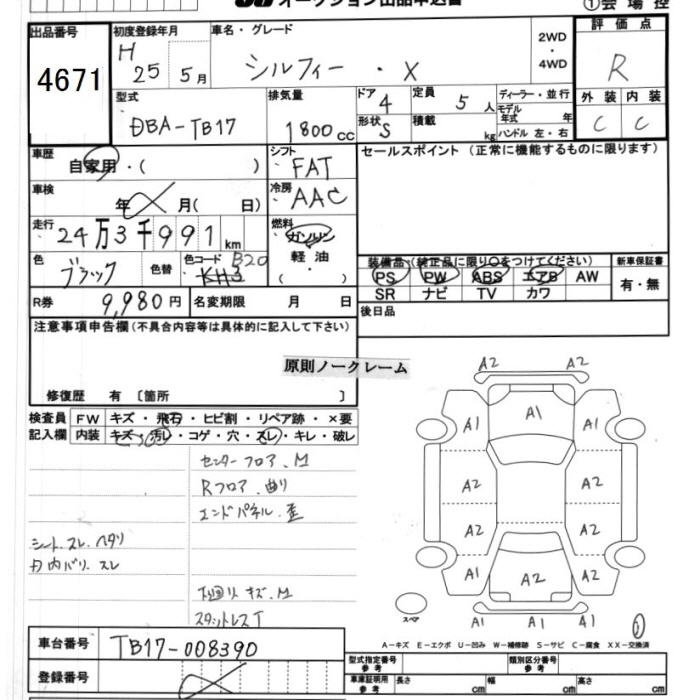 オークション出品申込書
①会場控
出品番号
4671
初度登録年月
H 25 5月
車名・グレード
シルフィー ・ X
2WD
・
4WD
評価点
R
型式
DBA-TB17
排気量
1800cc
ドア
4
定員
5人
ディーラー・並行
モデル年式 年
ハンドル 左・右
形状
S
積載
kg
外装
内装
C
C
車歴
自家用・( )
シフト
FAT
車検
年 月( 日)
冷房
AAC
走行
24万3千991km
燃料
ガソリン
軽油
・
( )
色
ブラック
色替
色コード
KH3 B20
R券
9,980円
名変期限 月 日
セールスポイント(正常に機能するものに限ります)
装備品(純正品に限り○をつけてください)
新車保証書
PS PW ABS エアB AW
SR ナビ TV カワ
有・無
後日品
注意事項申告欄(不具合内容等は具体的に記入して下さい)
原則ノークレーム
修復歴 有 〔箇所 〕
検査員記入欄
FW キズ・飛石・ヒビ割・リペア跡・×要
内装 キズ・汚レ・コゲ・穴・スレ・キレ・破レ
センターフロア.M
Rフロア.曲り
エンドパネル.歪
シート.スレ.ヘタリ
内バリ.スレ
下回りキズ.M
スタットレスT
A2 A2
A1 A1 A1
A2 A2
A2 A2
A1 A2 A1
A1 A1 A1
スペア
A-キズ E-エクボ U-凹み W-補修跡 S-サビ C-腐食 XX-交換済
車台番号
TB17-008390
登録番号
型式指定番号
参考
類別区分番号
参考
車庫証明用
参考
長さ cm
幅 cm
高さ cm